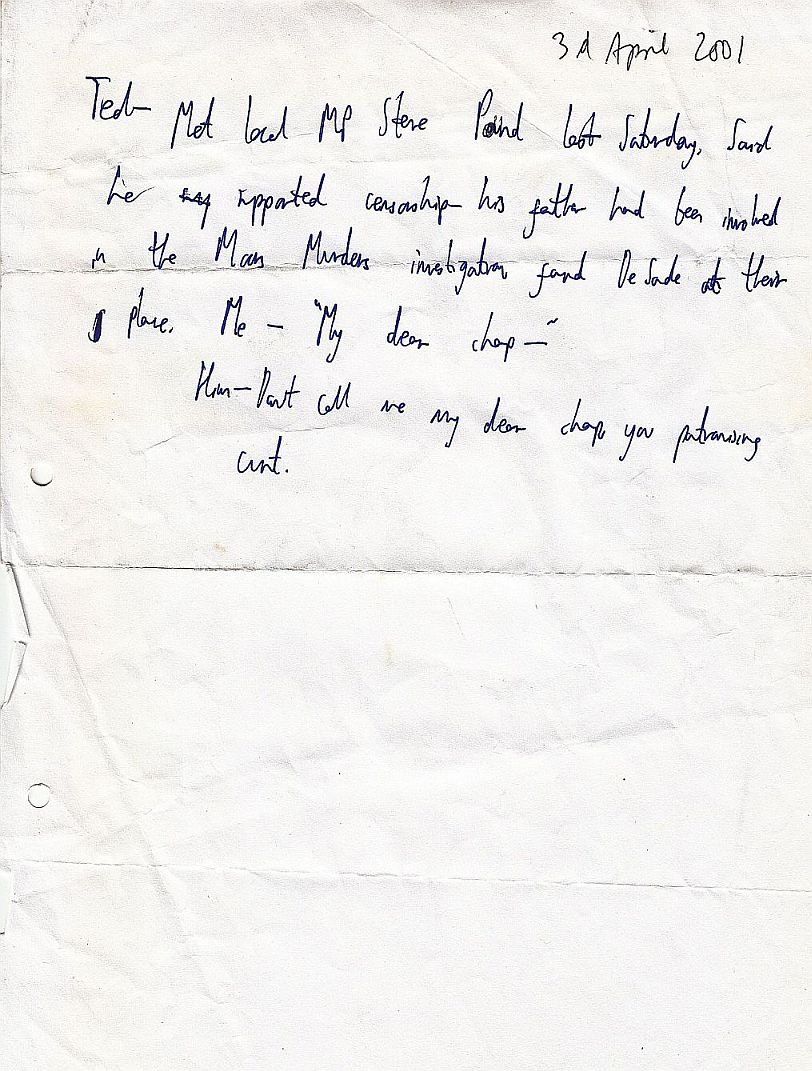 3d April 2001
Ted— Met local MP Steve Pound last Saturday, Said
he supported censorship— his father had been involved
in the Moors Murders investigation found De Sade at their
place. Me — "My dear chap —"
Him— Don't call me my dear chap you patronising
cunt.